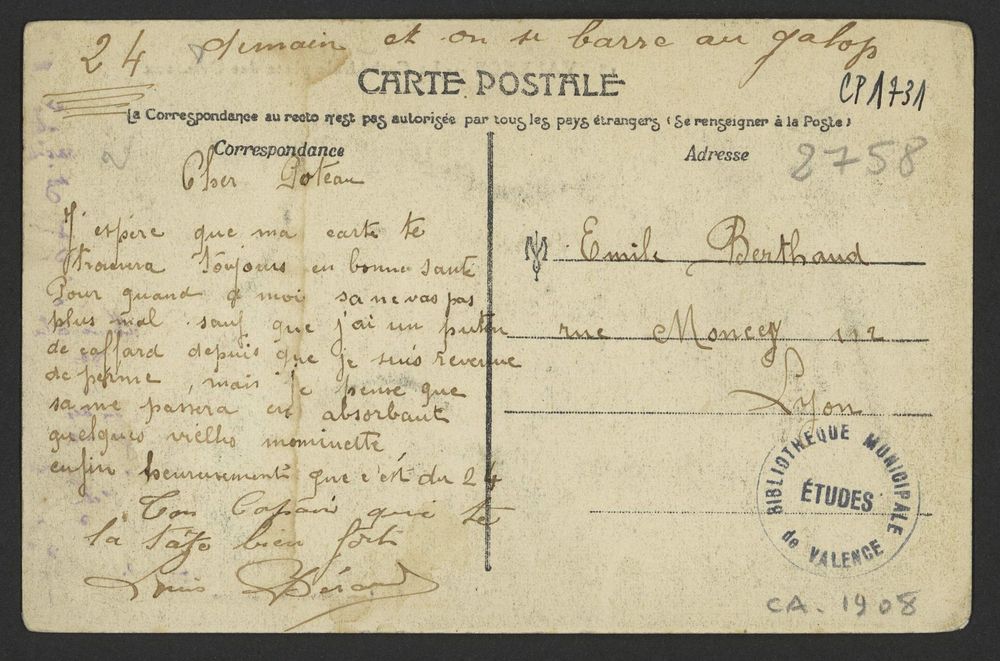 24 demain et on se barre au galop
CARTE POSTALE
CP1731
La Correspondance au recto n'est pas autorisée par tous les pays étrangers (Se renseigner à la Poste)
Correspondance
Adresse
2758
2
Cher Poteau
J'espère que ma carte te
trouvera toujours en bonne santé
Pour quand a moi sa ne vas pas
plus mal sauf que j'ai un putin
de caffard depuis que je suis revenue
de perme, mais je pense que
sa me passera en absorbant
quelques vielles mominette
enfin heureusement que c'est du 24
Ton Copain qui te
la
bien fort
Louis Bérard
M Emile Berthaud
rue Moncey 112
Lyon
BIBLIOTHÈQUE MUNICIPALE
ÉTUDES
de VALENCE
CA. 1908